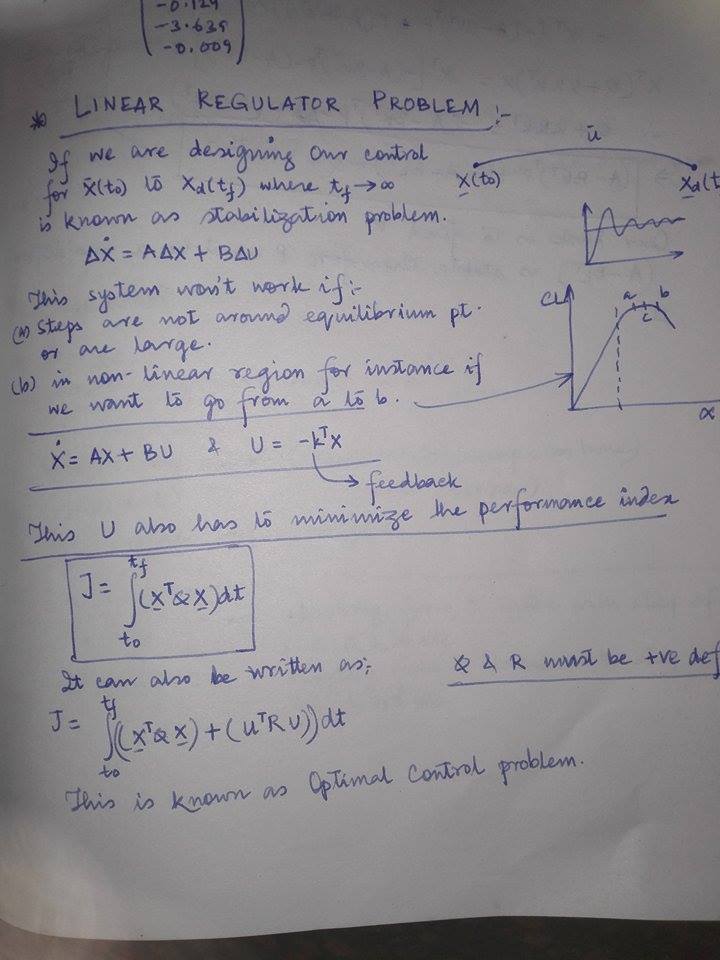 -0.129
-3.639
-0.009
* LINEAR REGULATOR PROBLEM :-
If we are designing our control
for x̄(t0) to Xd(tf) where tf→∞
is known as stabilization problem.
ū
X(t0)
Xd(t
ΔẊ = AΔX + BΔU
This system won't work if:-
(a) Steps are not around equilibrium pt.
or are large.
(b) in non-linear region for instance if
we want to go from a to b.
CL
a
b
c
α
Ẋ = AX + BU & U = -kᵀX
→ feedback
This U also has to minimize the performance index
J = ∫t0^tf (XᵀQX)dt
It can also be written as;
Q & R must be +ve def
J = ∫t0^tf ((XᵀQX) + (UᵀRU))dt
This is known as Optimal Control problem.